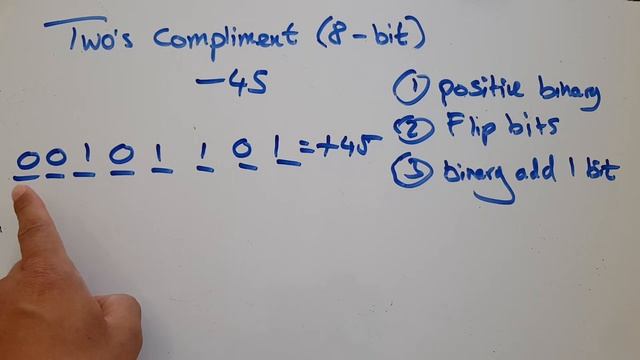 Two's Compliment (8-bit)
-45
① positive binary
② Flip bits
③ binary add 1 bit
0 0 1 0 1 1 0 1 = +45